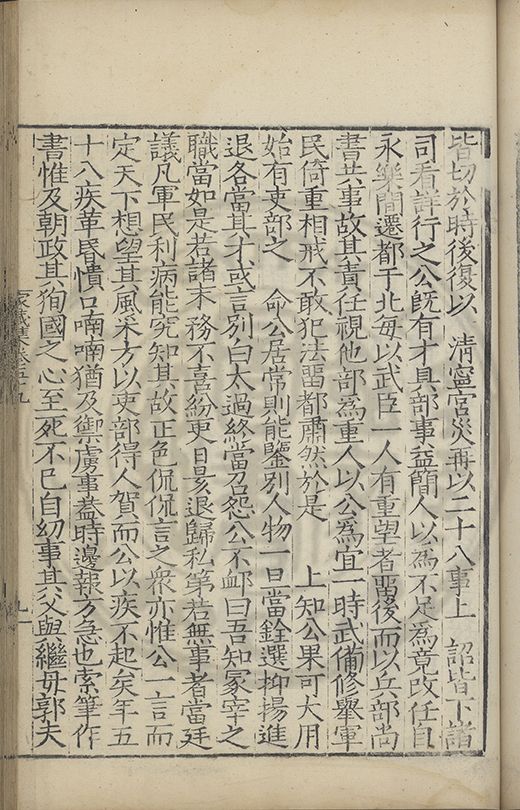 皆切於時後復以　清寧宮災再以二十八事上　詔皆下諸
司看詳行之公旣有才具部事益簡人以爲不足爲竟改任自
永樂間遷都于北每以武臣一人有重望者畱後而以兵部尚
書共事故其責任視他部爲重人以公爲宜一時武備修舉軍
民倚重相戒不敢犯法畱都肅然於是　　上知公果可大用
始有吏部之　命公居常則能鑒别人物一日當銓選抑揚進
退各當其才或言别白太過終當召怨公不衈曰吾知冡宰之
職當如是若諸末務不喜紛更日昃退歸私第若無事者當廷
議凡軍民利病能究知其故正色侃侃言之衆亦惟公一言而
定天下想望其風采方以吏部得人賀而公以疾不起矣年五
十八疾革昏憒口喃喃猶及禦虜事葢時邊報方急也索筆作
書惟及朝政其殉國之心至死不已自幼事其父與繼母郭夫